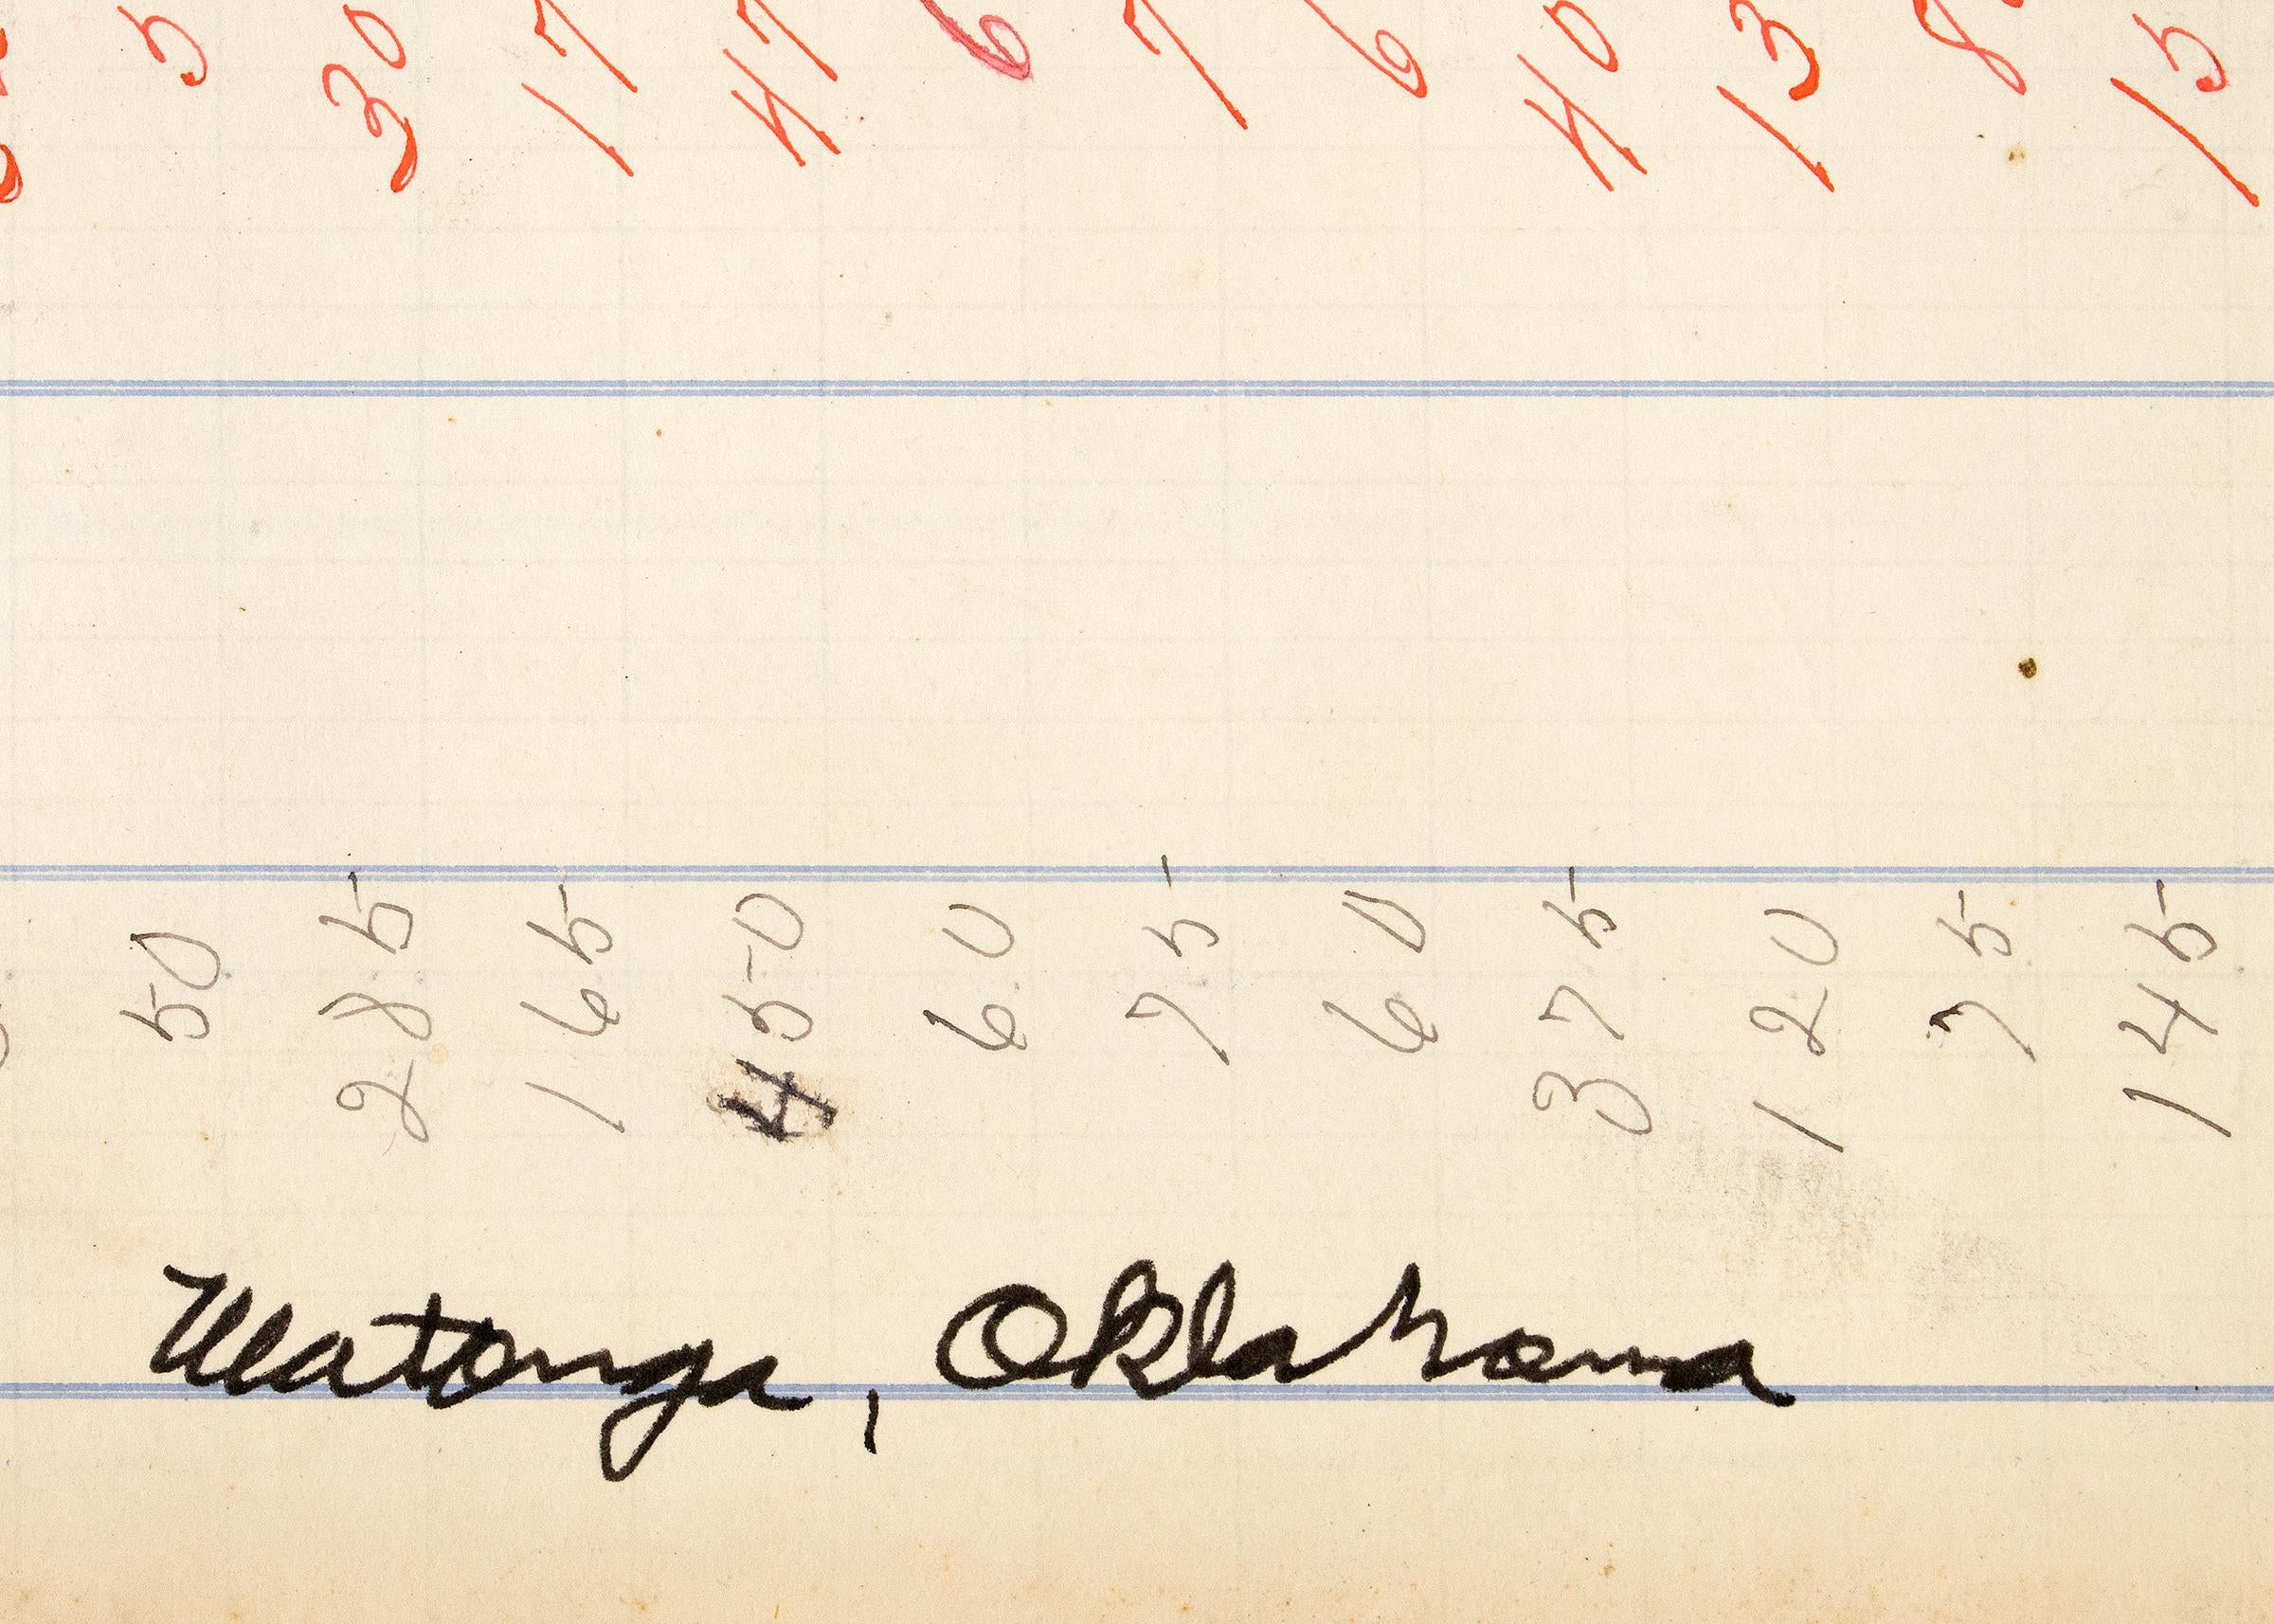 50 5
285 30
165 17
450 47
60 6
75 7
60 6
375 40
120 13
75 8
145 15
Watonga, Oklahoma